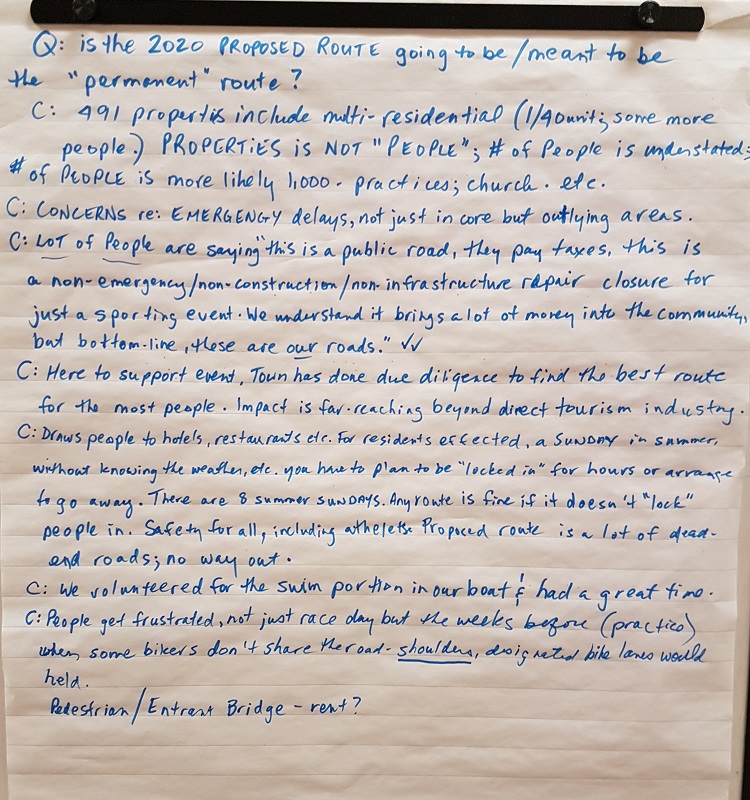 Q: is the 2020 PROPOSED ROUTE going to be/meant to be
the "permanent" route?
C: 491 properties include multi-residential (1/40unit; some more
people.) PROPERTiES is NOT "PEOPLE"; # of People is understated;
# of PEOPLE is more likely 1,000 - practices; church. etc.
C: CONCERNS re: EMERGENGY delays, not just in core but outlying areas.
C: LOT of People are saying "this is a public road, they pay taxes, this is
a non-emergency/non-construction/non-infrastructure repair closure for
just a sporting event. We understand it brings a lot of money into the community,
but bottom-line, these are our roads." ✓✓
C: Here to support event, Town has done due diligence to find the best route
for the most people. Impact is far-reaching beyond direct tourism industry.
C: Draws people to hotels, restaurants etc. For residents effected, a SUNDAY in summer,
without knowing the weather, etc. you have to plan to be "locked in" for hours or arrange
to go away. There are 8 summer SUNDAYS. Any route is fine if it doesn't "lock"
people in. Safety for all, including atheletes. Proposed route is a lot of dead-
end roads; no way out.
C: We volunteered for the swim portion in our boat & had a great time.
C: People get frustrated, not just race day but the weeks before (practice)
when some bikers don't share the road - shoulders, designated bike lanes would
held.
Pedestrian/Entrant Bridge - rent?